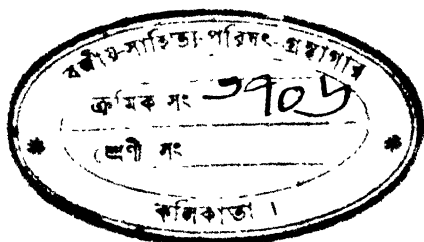 বঙ্গীয়-সাহিত্য-পরিষৎ-গ্রন্থাগার
ক্রমিক সং ৩৭০৬
শ্রেণী সং
কলিকাতা ।